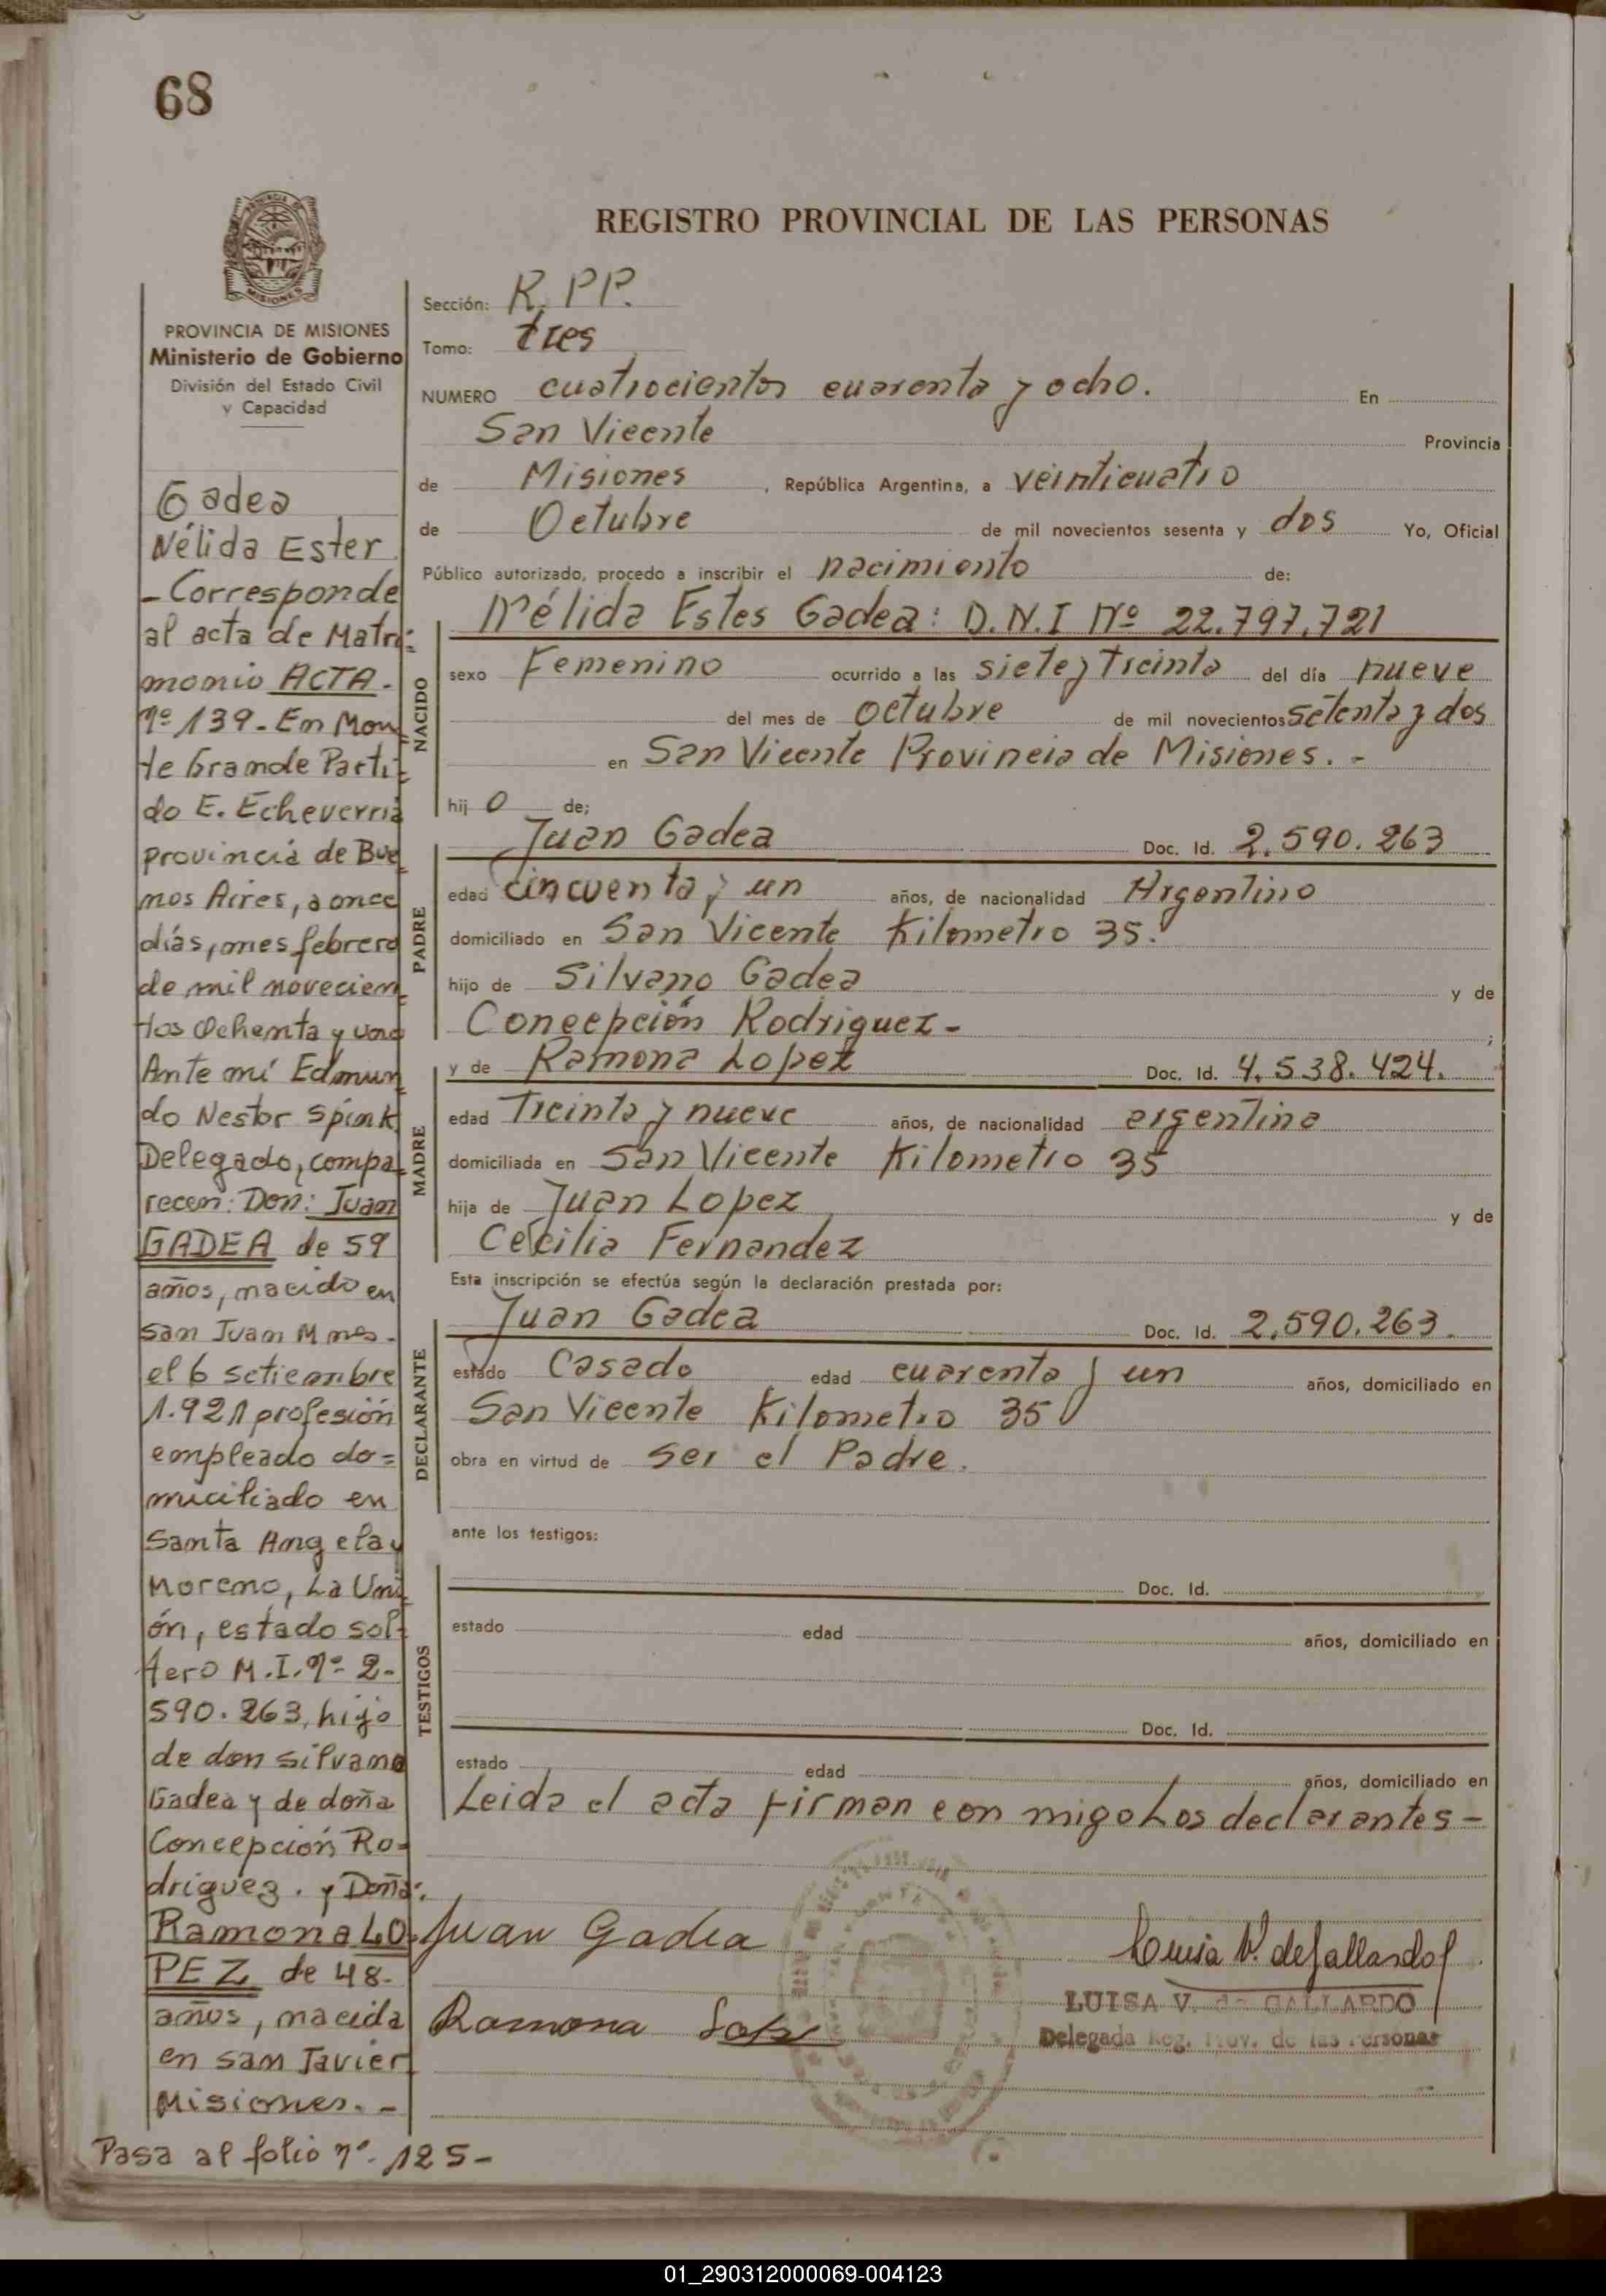 68
MISIONES
PROVINCIA DE MISIONES
Ministerio de Gobierno
División del Estado Civil
y Capacidad
Gadea
Nélida Ester
- Corresponde
al acta de Matri=
monio ACTA.
nº 139. En Mon
te Grande Parti=
do E. Echeverría
provincia de Bue
nos Aires, a once
días, mes febrero
de mil novecien
tos ochenta y uno
Ante mí Edmun
do Nestor Spink
Delegado, compa
recen: Don: Juan
GADEA de 59
años, nacido en
San Juan Mnes.
el 6 setiembre
1.921 profesión
empleado do=
miciliado en
Santa Angela y
Moreno, La Uni
ón, estado sol=
tero M.I. nº 2.
590.263, hijo
de don Silvano
Gadea y de doña
Concepción Ro=
driguez. y Doña:
Ramona LO
PEZ de 48.
años, nacida
en San Javier
Misiones. -
Pasa al folio nº. 125-
REGISTRO PROVINCIAL DE LAS PERSONAS
Sección: R. PP.
Tomo: tres
NUMERO cuatrocientos cuarenta y ocho. En
San Vicente Provincia
de Misiones, República Argentina, a veinticuatro
de Octubre de mil novecientos sesenta y dos Yo, Oficial
Público autorizado, procedo a inscribir el nacimiento de:
Nélida Ester Gadea: D.N.I Nº 22.797.721
NACIDO
sexo Femenino ocurrido a las siete y Treinta del día nueve
del mes de octubre de mil novecientos setenta y dos
en San Vicente Provincia de Misiones. -
hij o de;
Juan Gadea Doc. Id. 2.590.263
PADRE
edad cincuenta y un años, de nacionalidad Argentino
domiciliado en San Vicente Kilometro 35.
hijo de Silvano Gadea y de
Concepción Rodriguez- ;
y de Ramona Lopez Doc. Id. 4.538.424.
MADRE
edad Treinta y nueve años, de nacionalidad argentina
domiciliada en San Vicente Kilometro 35
hija de Juan Lopez y de
Cecilia Fernandez
Esta inscripción se efectúa según la declaración prestada por:
Juan Gadea Doc. Id. 2.590.263.
DECLARANTE
estado Casado edad cuarenta y un años, domiciliado en
San Vicente Kilometro 35
obra en virtud de ser el Padre.
ante los testigos:
Doc. Id.
TESTIGOS
estado edad años, domiciliado en
Doc. Id.
estado edad años, domiciliado en
Leida el acta firman con migo Los declarantes-
Juan Gadea
Luisa V. de Gallardo
LUISA V. de GALLARDO
Ramona Lopez
Delegada Reg. Prov. de las Personas
01_290312000069-004123